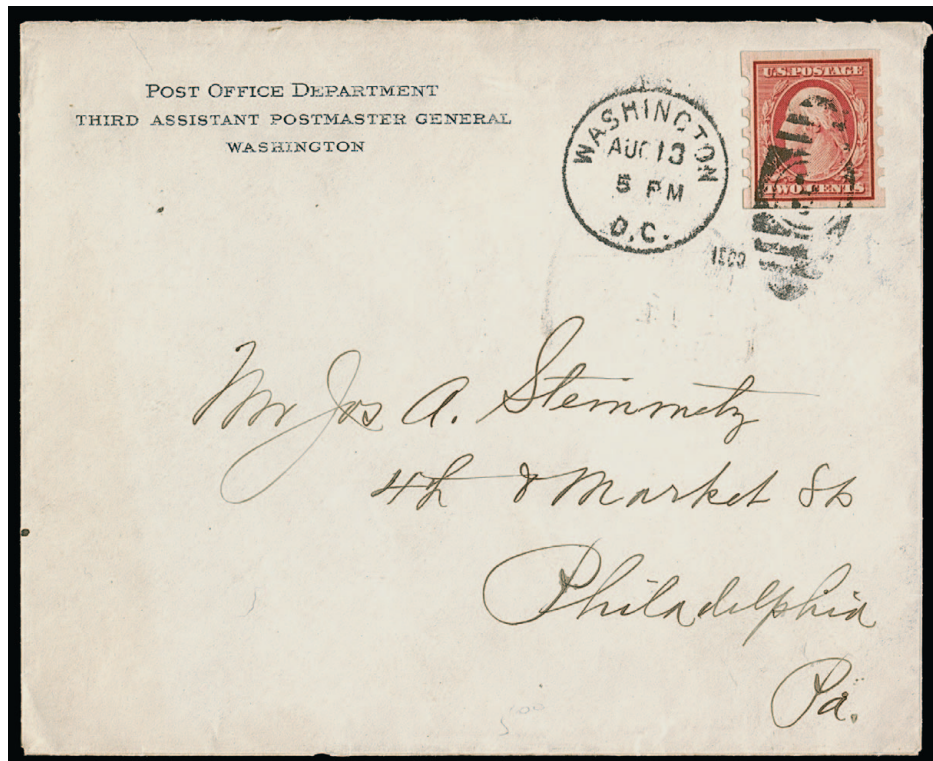 POST OFFICE DEPARTMENT
THIRD ASSISTANT POSTMASTER GENERAL
WASHINGTON
WASHINGTON
AUG 13
5 PM
D.C.
U.S. POSTAGE
TWO CENTS
Mr Jos A. Steinmetz
4th & Market St
Philadelphia
Pa.